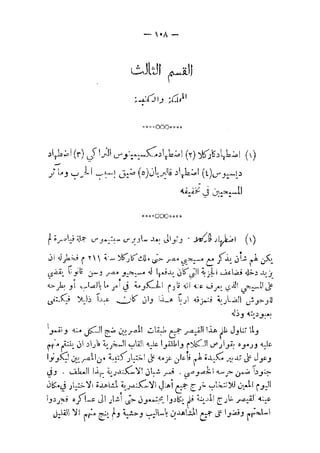 — ١٠٨ —
القسم الثالث
المملكة والكنيسة
(١) اضطهاد كاركلا (٢) اضطهاد مكسيمينوس التراكي (٣) اضطهاد
ديسيوس (٤) اضطهاد فاليريان (٥) ضيق بسبب الحرب ومآثر
المسيحيين في تخفيفه
(١) اضطهاد كاركلا. وتوالى بعد ساويرس سبتيموس جملة قياصرة لم
يكن لهم شأن يذكر مع مسيحيي مصر حتى ملك كاركلا سنة ٢١١ م فخطر له ان
يزيد دخله فضاعف الجزية التي كان يدفعها له مسيحيو مصر وسن قانونًا يقضي
على المسيحي الذي يعرف عنه انه قاوم الحكومة في أمر ما بالصلب أو بطرحه
للوحوش الضارية فتمزقه اربًا هذا وان كانت عبدًا ذليلا فيكتفى
بعبوديته وذله
ولما تناول ظلم هذا القيصر جميع طبقات المصريين ضج الكل منه ونقموا
عليه ورموه بقوارص الكلام واطلقوا عليه القاب السخرية فاراد ان ينتقم منهم
وعول على تدبير مكيدة لهم فأعلن عزمه على اختيار كتيبة من المصريين ليكونوا
جنودًا ضمن حرسه الخصوصي. فسر شبان الاسكندرية بهذا العطف. وفي
اليوم المعين للانتخاب خرج جميع أهالي الاسكندرية لمشاهدة الاختيار في مكان
عينه لقيصر خارج المدينة فلم يكادوا يجتمعون حتى أشار الى عساكره فجردوا
اسلحتهم وقضوا على جميع المشاهدين بأساليب وحشية ولم ينج منهم الا القليل